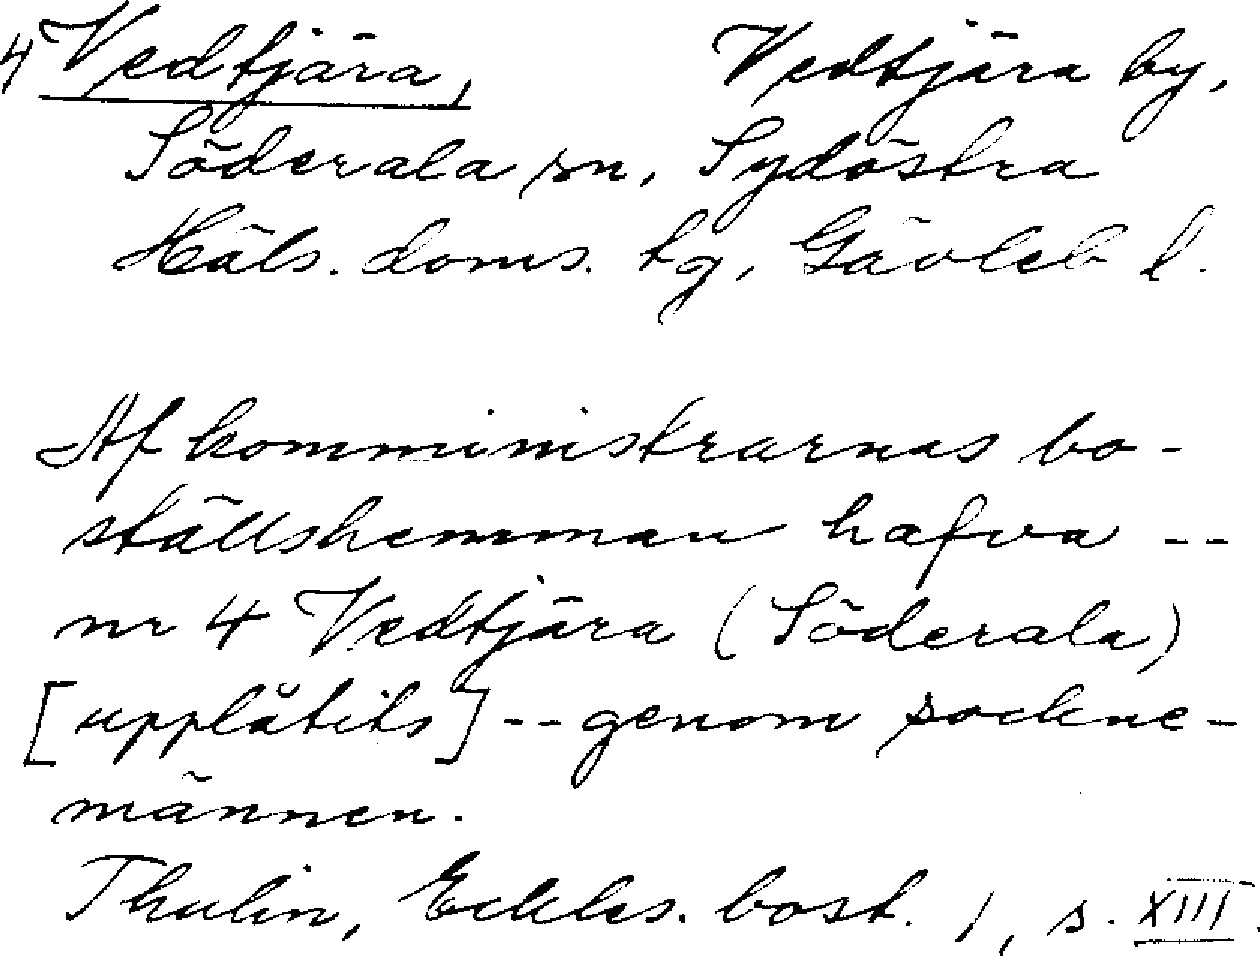 4 Vedtjära, Vedtjära by,
Söderala sn, Sydöstra
Häls. doms. tg, Gävleb l.
Af komministrarnas bo-
ställshemman hafva --
nr 4 Vedtjära (Söderala)
[upplåtits] -- genom sockne-
männen.
Thulin, Eckles. bost. 1, s. XIII.